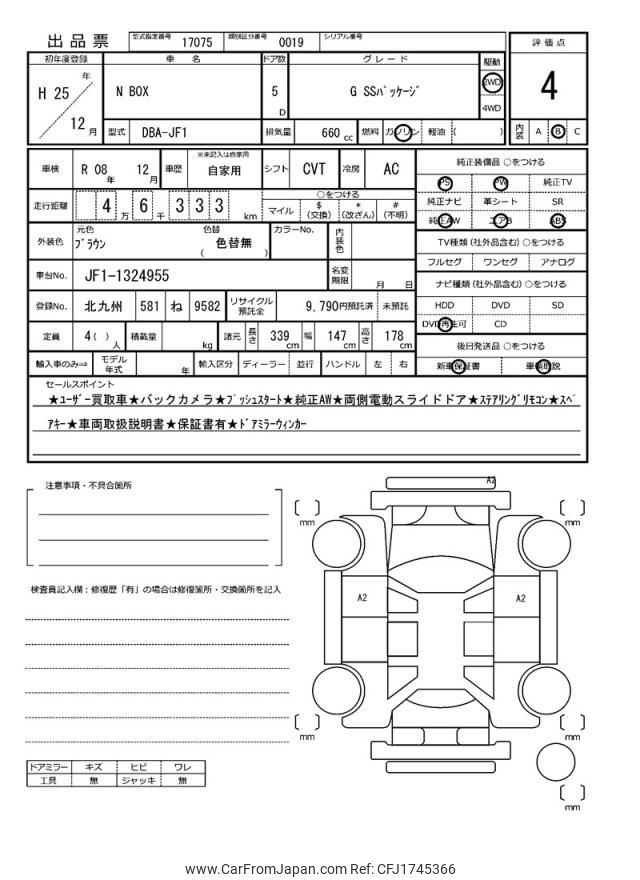 出品票 型式指定番号 17075 類別区分番号 0019 シリアル番号
評価点
4
初年度登録 車名 ドア数 グレード 駆動
H 25 年 12 月 N BOX 5 D G SSパッケージ 2WD 4WD
型式 DBA-JF1 排気量 660 cc 燃料 ガソリン 軽油 ( )
内装 A B C
車検 R 08 年 12 月 車歴 ※未記入は自家用 自家用 シフト CVT 冷房 AC
走行距離 4 万 6 千 3 3 3 km
○をつける
マイル $ (交換) * (改ざん) # (不明)
外装色 元色 ブラウン 色替 ( 色替無 ) カラーNo. 内装色
車台No. JF1-1324955 名変期限 月 日
登録No. 北九州 581 ね 9582 リサイクル預託金 9,790円預託済 未預託
定員 4( ) 人 積載量 kg 諸元 長さ 339 cm 幅 147 cm 高さ 178 cm
輸入車のみ⇒ モデル年式 年 輸入区分 ディーラー 並行 ハンドル 左 右
純正装備品 ○をつける
PS PW 純正TV
純正ナビ 革シート SR
純正AW エアB ABS
TV種類(社外品含む)○をつける
フルセグ ワンセグ アナログ
ナビ種類(社外品含む)○をつける
HDD DVD SD
DVD再生可 CD
後日発送品 ○をつける
新車保証書 車輌取説
セールスポイント
★ユーザー買取車★バックカメラ★プッシュスタート★純正AW★両側電動スライドドア★ステアリングリモコン★スペ
アキー★車両取扱説明書★保証書有★ドアミラーウィンカー
注意事項・不具合箇所
検査員記入欄:修復歴「有」の場合は修復箇所・交換箇所を記入
A2
mm
mm
A2
A2
mm
mm
mm
ドアミラー キズ ヒビ ワレ
工具 無 ジャッキ 無
www.CarFromJapan.com Ref: CFJ1745366